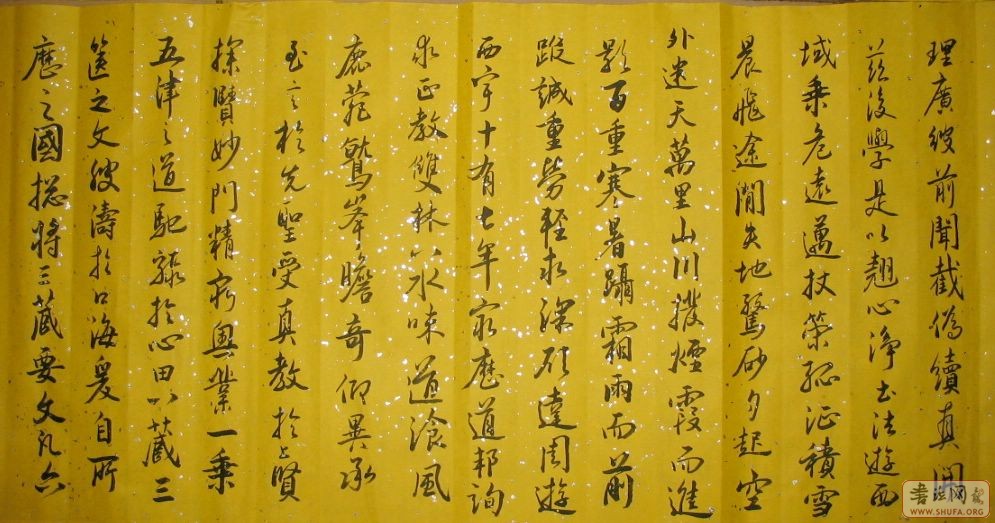 理廣彼前聞截偽續真開
茲後學是以翹心淨土法遊西
域乘危遠邁杖策孤征積雪
晨飛途閒失地驚砂夕起空
外迷天萬里山川撥煙霞而進
影百重寒暑躡霜雨而前
蹤誠重勞輕求深願達周遊
西宇十有七年窮歷道邦詢
求正教雙林八水味道湌風
鹿菀鷲峯瞻奇仰異承
至言於先聖受真教於上賢
探賾妙門精窮奧業一乘
五律之道馳驟於心田八藏三
篋之文波濤於口海爰自所
歷之國揔將三藏要文凡六
书法网
WWW.SHUFA.ORG